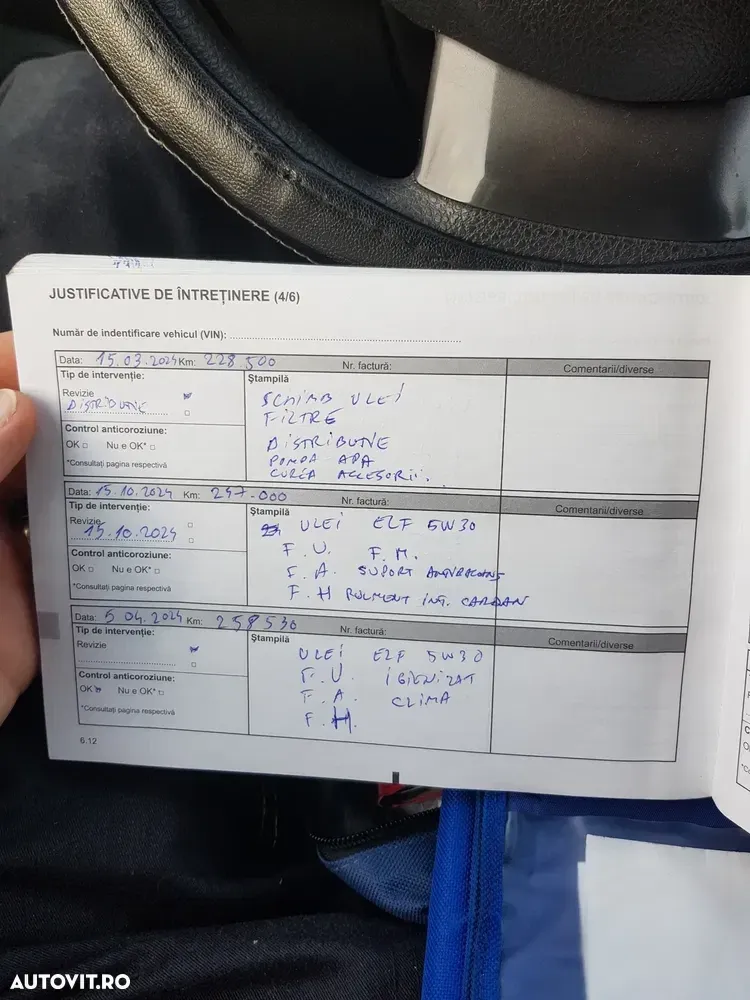 JUSTIFICATIVE DE ÎNTREȚINERE (4/6)
Număr de indentificare vehicul (VIN):
Data: 15.03.2024 Km: 228 500 Nr. factură: Comentarii/diverse
Tip de intervenție: Ștampilă
Revizie
DISTRIBUȚIE
SCHIMB ULEI
FILTRE
DISTRIBUȚIE
POMPA APA
CUREA ACCESORII.
Control anticoroziune:
OK Nu e OK*
*Consultați pagina respectivă
Data: 15.10.2024 Km: 247-000 Nr. factură: Comentarii/diverse
Tip de intervenție: Ștampilă
Revizie
15.10.2024
ULEI ELF 5W30
F.U. F.M.
F.A. SUPORT
F.H RULMENT INT. CARDAN
Control anticoroziune:
OK Nu e OK*
*Consultați pagina respectivă
Data: 5 04.2024 Km: 258 530 Nr. factură: Comentarii/diverse
Tip de intervenție: Ștampilă
Revizie
ULEI ELF 5W30
F.U. IGIENIZAT
F.A. CLIMA
F.H.
Control anticoroziune:
OK Nu e OK*
*Consultați pagina respectivă
6.12
AUTOVIT.RO